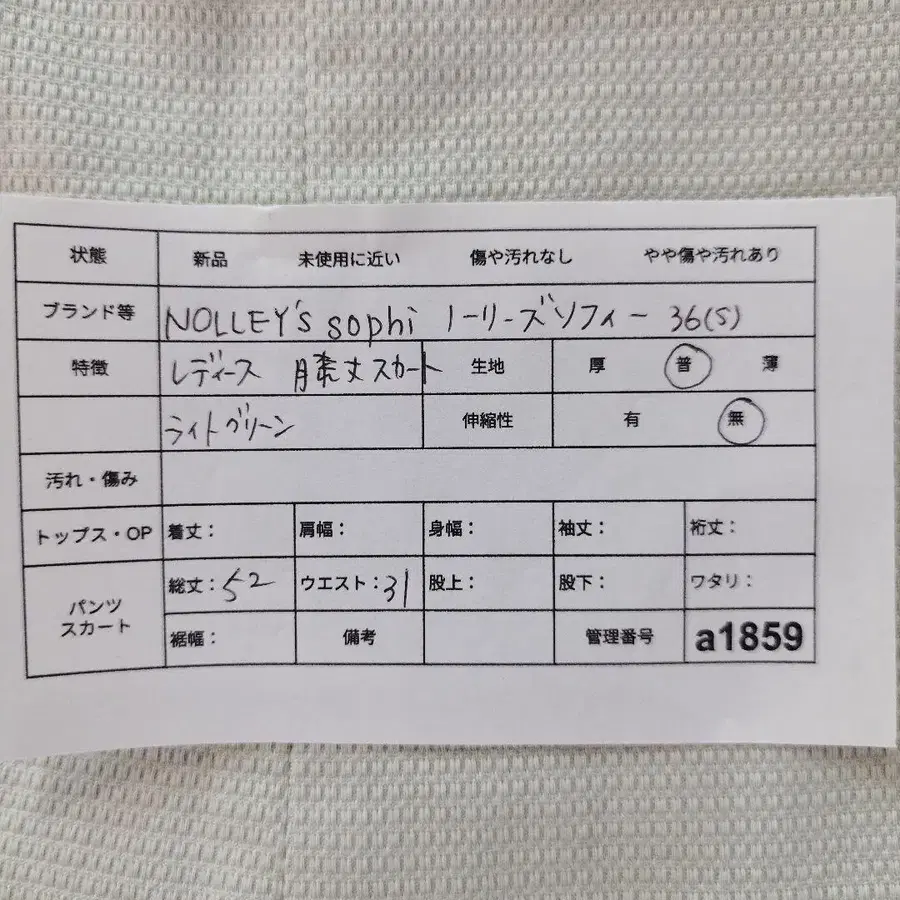 状態 新品 未使用に近い 傷や汚れなし やや傷や汚れあり
ブランド等 NOLLEY's sophi ノーリーズソフィー 36(S)
特徴 レディース 膝丈スカート 生地 厚 普 薄
ライトグリーン 伸縮性 有 無
汚れ・傷み
トップス・OP 着丈: 肩幅: 身幅: 袖丈: 裄丈:
パンツ スカート 総丈:52 ウエスト:31 股上: 股下: ワタリ:
裾幅: 備考 管理番号 a1859